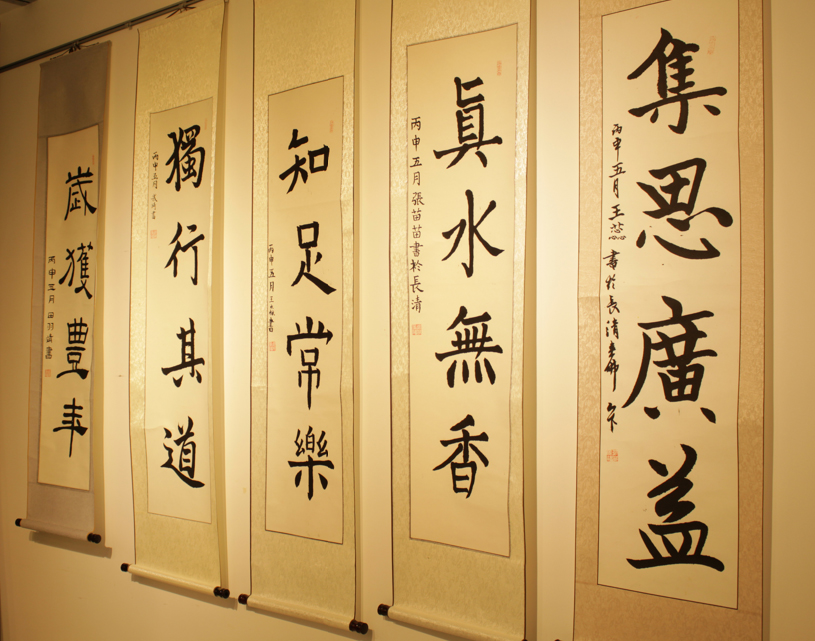 集思廣益
丙申五月王蕊書於長清
真水無香
丙申五月張苗苗書於長清
知足常樂
丙申五月王
獨行其道
丙申五月
歲獲豊年
丙申五月